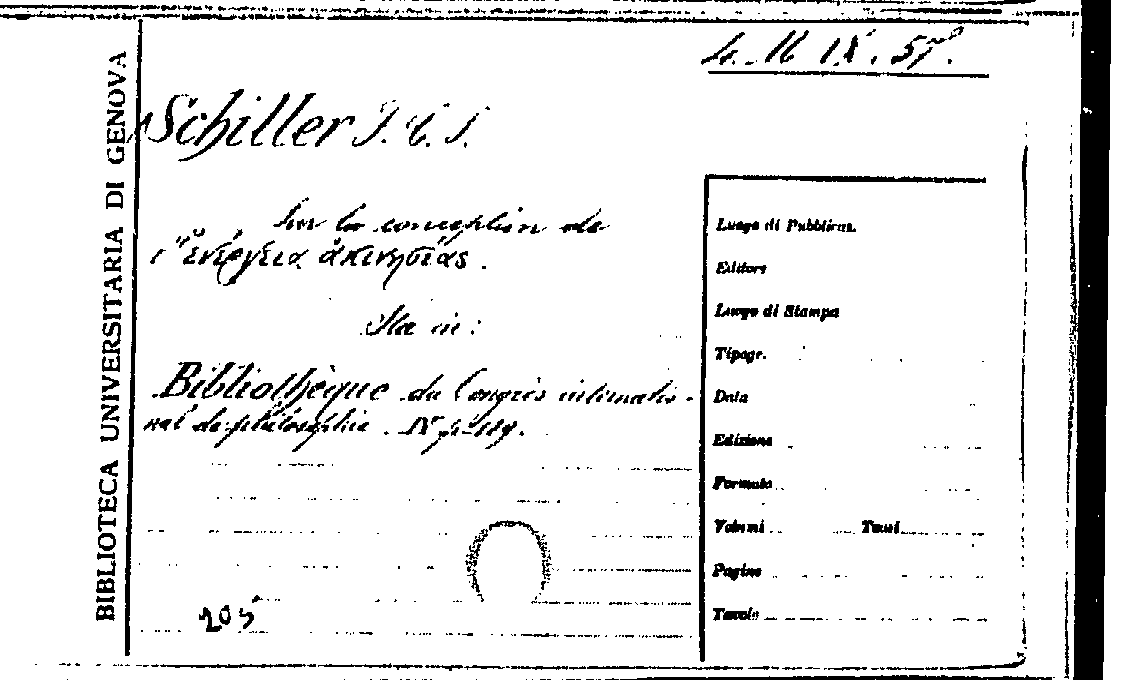 BIBLIOTECA UNIVERSITARIA DI GENOVA
4. M IX. 57.
Schiller F. C. S.
Sur la conception de
l'ἐνέργεια ἀκινησίας.
Sta in:
Bibliothèque du Congrès internatio-
nal de philosophie. IV p. 189.
205
Luogo di Pubblicaz.
Editore
Luogo di Stampa
Tipogr.
Data
Edizione
Formato
Volumi Tomi
Pagine
Tavole